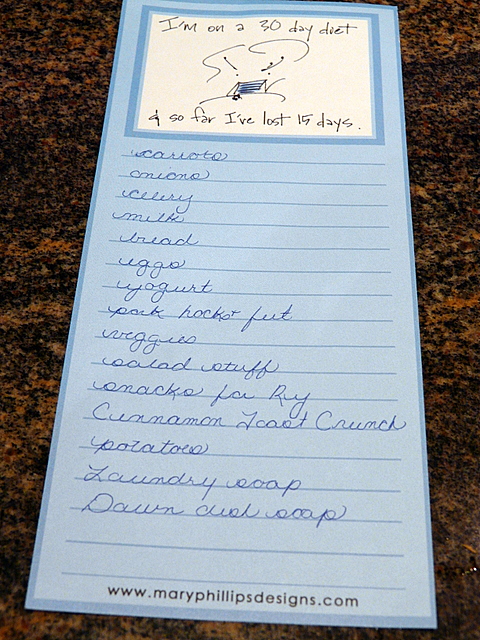 I'm on a 30 day diet
& so far I've lost 15 days.
carrots
onions
celery
milk
bread
eggs
yogurt
pork hocks feet
veggies
salad stuff
snacks for Ry
Cinnamon Toast Crunch
potatoes
Laundry soap
Dawn dish soap
www.maryphillipsdesigns.com